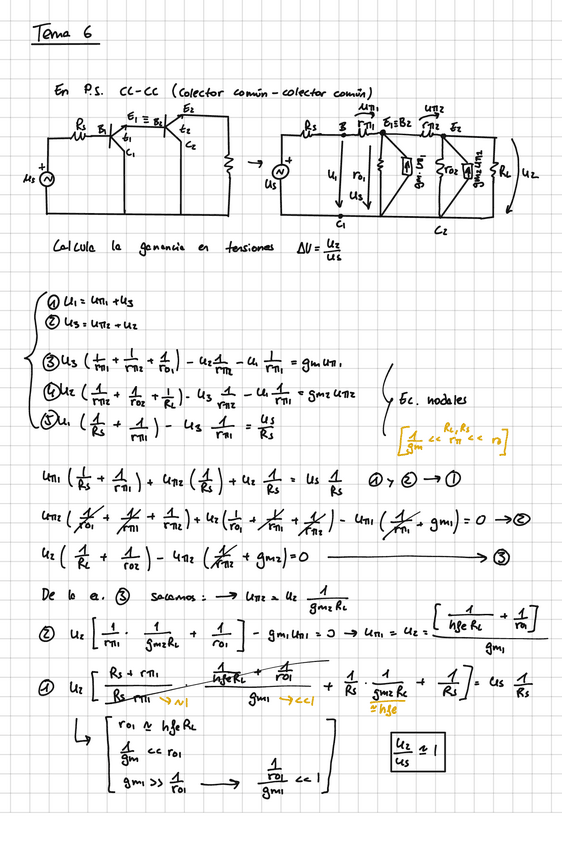 Tema 6
En P.S. CC-CC (colector común - colector común)
Rs B1 E1 ≡ B2 E2
t1 t2
C1 C2
us
Rs B uπ1 rπ1 E1≡B2 uπ2 rπ2 E2
us u1 ro1 u3 gm1 uπ1 ro2 gm2 uπ2 RL u2
C1 C2
Calcula la ganancia en tensiones ΔU = u2/us
① u1 = uπ1 + u3
② u3 = uπ2 + u2
③ u3 (1/rπ1 + 1/rπ2 + 1/ro1) - u2 1/rπ2 - u1 1/rπ1 = gm uπ1
④ u2 (1/rπ2 + 1/ro2 + 1/RL) - u3 1/rπ2 - u1 1/rπ1 = gm2 uπ2
⑤ u1 (1/Rs + 1/rπ1) - u3 1/rπ1 = us/Rs
Ec. nodales
RL, Rs
[1/gm << rπ << ro]
uπ1 (1/Rs + 1/rπ1) + uπ2 (1/Rs) + u2 1/Rs = us 1/Rs ① y ② → ①
uπ2 (1/ro1 + 1/rπ1 + 1/rπ2) + u2 (1/ro1 + 1/rπ1 + 1/rπ2) - uπ1 (1/rπ1 + gm1) = 0 → ②
u2 (1/RL + 1/ro2) - uπ2 (1/rπ2 + gm2) = 0 → ③
De la e. ③ sacamos: → uπ2 = u2 1/gm2 RL
② u2 [1/rπ1 · 1/gm2RL + 1/ro1] - gm1 uπ1 = 0 → uπ1 = u2 = [1/hfe RL + 1/ro1]/gm1
① u2 [Rs + rπ1/Rs rπ1 · 1/hfeRL + 1/ro1/gm1 + 1/Rs · 1/gm2 RL + 1/Rs] = us 1/Rs
→ ~1 → <<1 ≃ hfe
ro1 ≃ hfe RL
1/gm << ro1
gm1 >> 1/ro1 → 1/ro1/gm1 << 1
u2/us ≃ 1